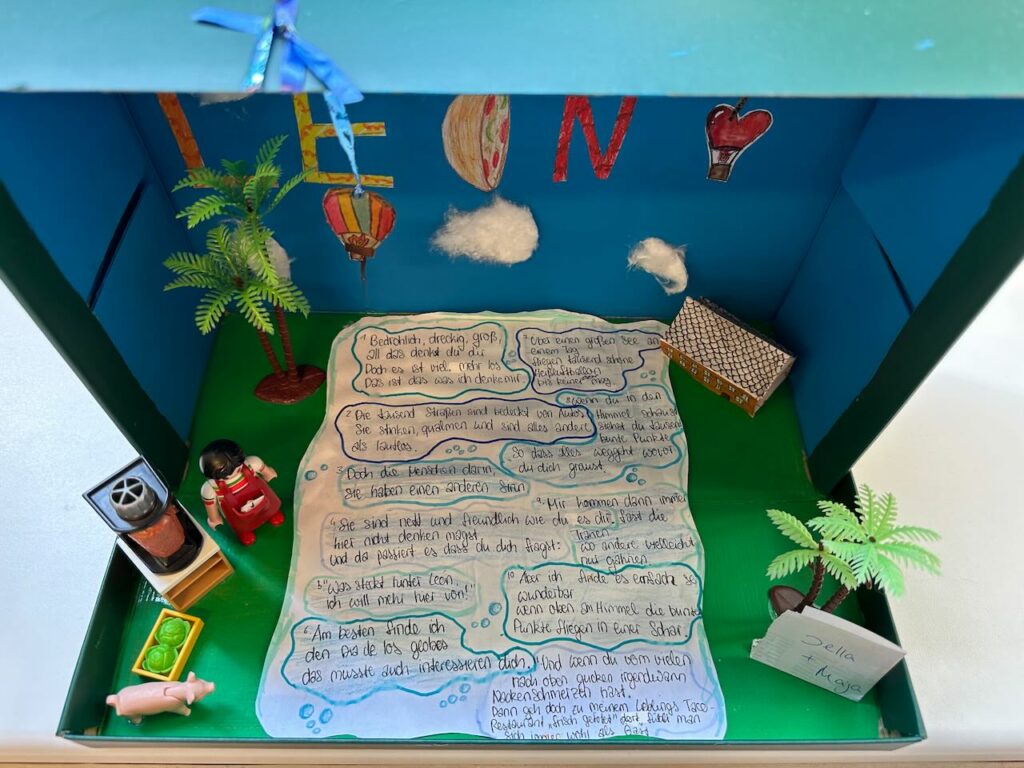 L E O N
1. Bedrohlich, dreckig, groß,
All das denkst du dir
Doch es ist viel mehr los
Das ist das was ich denke mir.
2. Die tausend Straßen sind bedeckt von Autos
Sie stinken, qualmen und sind alles andere
als lautlos.
3. Doch die Menschen darin
Sie haben einen anderen Sinn
4. Sie sind nett und freundlich wie du es dir
hier nicht denken magst
und da passiert es dass du dich fragst:
5. "Was steckt hinter León,
ich will mehr hier von!"
6. Am besten finde ich
den Día de los globos
das müsste auch interessieren dich.
7. Über einen großen See an
einem Tag
fliegen tausend schöne
Heißluftballons
bis keiner mag.
8. Wenn du in den
Himmel schaust
siehst du tausend
bunte Punkte
So dass alles weggeht wovor
du dich graust.
9. Mir kommen dann immer
fast die
Tränen
wo andere vielleicht
nur gähnen
10. Aber ich finde es einfach so
wunderbar
wenn oben am Himmel die bunten
Punkte fliegen in einer Schar.
11. Und wenn du vom vielen
nach oben gucken irgendwann
Nackenschmerzen hast.
Dann geh doch zu meinem Lieblings Taco-
Restaurant dort fühlt man
sich immer wohl als Gast
Jella
+ Maja